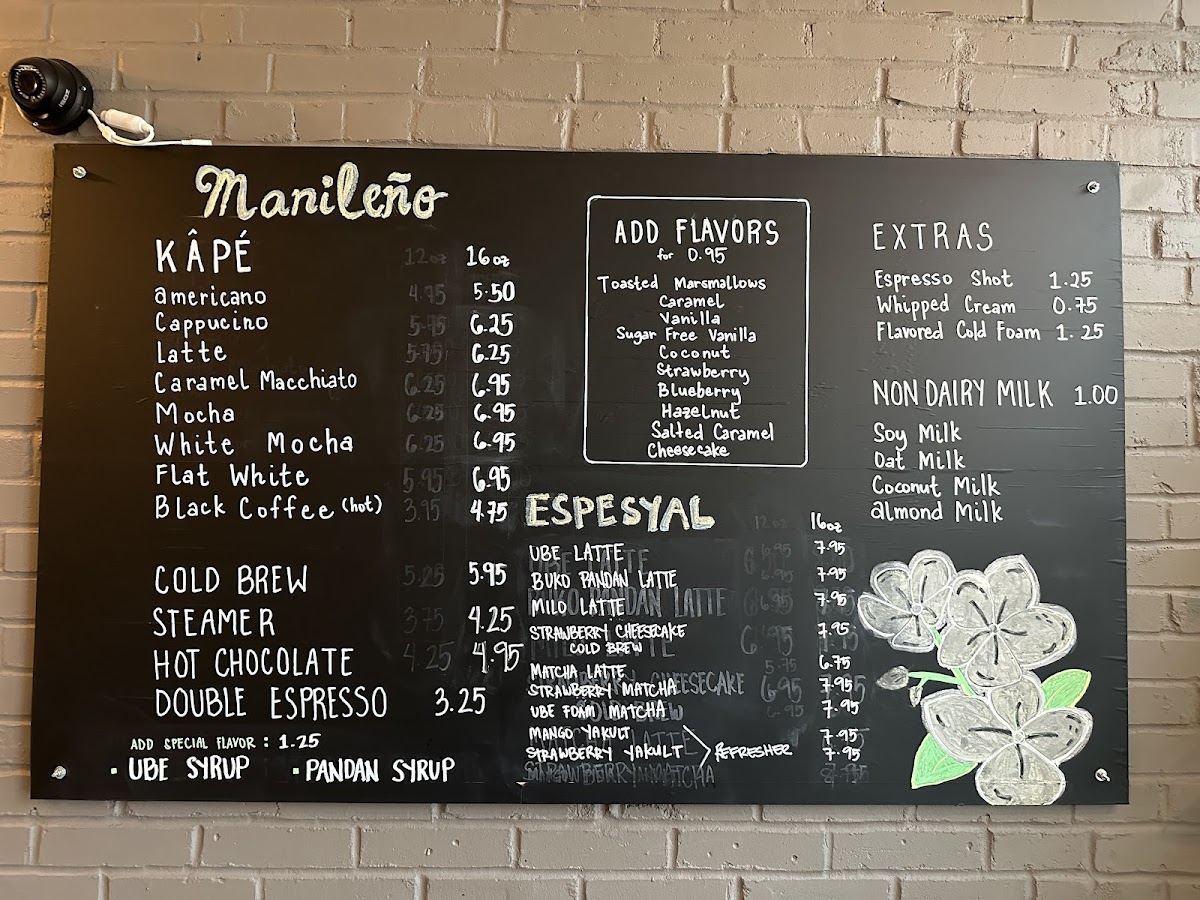 Manileño
KÂPÉ 12oz 16oz
americano 4.75 5.50
Cappucino 5.75 6.25
Latte 5.75 6.25
Caramel Macchiato 6.25 6.95
Mocha 6.25 6.95
White Mocha 6.25 6.95
Flat White 5.95 6.95
Black Coffee (hot) 3.95 4.75
COLD BREW 5.25 5.95
STEAMER 3.75 4.25
HOT CHOCOLATE 4.25 4.95
DOUBLE ESPRESSO 3.25
ADD SPECIAL FLAVOR : 1.25
· UBE SYRUP · PANDAN SYRUP
ADD FLAVORS
for 0.95
Toasted Marsmallows
Caramel
Vanilla
Sugar Free Vanilla
Coconut
Strawberry
Blueberry
Hazelnut
Salted Caramel
Cheesecake
ESPESYAL 12oz 16oz
UBE LATTE 6.95 7.95
BUKO PANDAN LATTE 6.95 7.95
MILO LATTE 6.95 7.95
STRAWBERRY CHEESECAKE 7.95
COLD BREW
MATCHA LATTE 5.75 6.75
STRAWBERRY MATCHA 6.95 7.95
UBE FOAM MATCHA 6.95 7.95
MANGO YAKULT 7.95
STRAWBERRY YAKULT 7.95
REFRESHER
STRAWBERRY MATCHA
EXTRAS
Espresso Shot 1.25
Whipped Cream 0.75
Flavored Cold Foam 1.25
NON DAIRY MILK 1.00
Soy Milk
Oat Milk
Coconut Milk
almond Milk